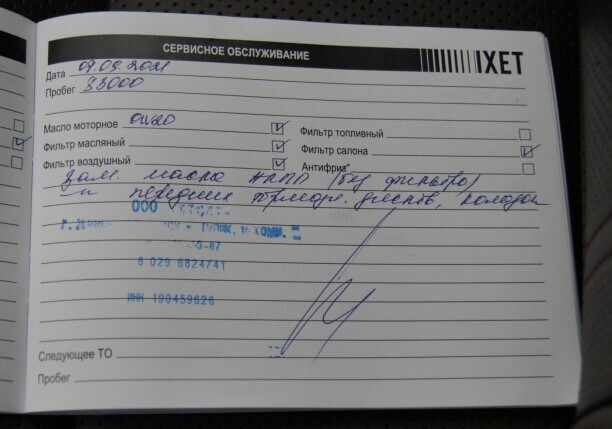 СЕРВИСНОЕ ОБСЛУЖИВАНИЕ
IXET
Дата 09.09.2021
Пробег 33000
Масло моторное 0W20
Фильтр топливный
Фильтр масляный
Фильтр салона
Фильтр воздушный
Антифриз
Зам. масла АКПП (без фильтра)
и передних тормоз. дисков, колодок
ООО
8 029 6824741
ИНН 190459626
Следующее ТО
Пробег